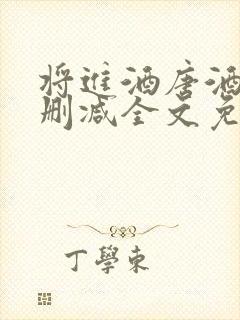 将進酒唐酒
删减全文免
丁學東